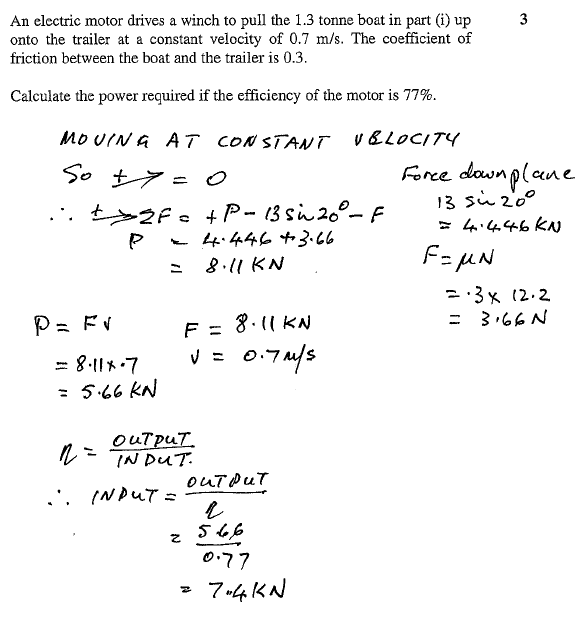 An electric motor drives a winch to pull the 1.3 tonne boat in part (i) up 3
onto the trailer at a constant velocity of 0.7 m/s. The coefficient of
friction between the boat and the trailer is 0.3.
Calculate the power required if the efficiency of the motor is 77%.
MOVING AT CONSTANT VELOCITY
So +→ = 0
∴ +→ΣF = +P - 13 sin 20° - F
P = 4.446 + 3.66
= 8.11 KN
Force down plane
13 sin 20°
= 4.446 KN
F = μN
= .3 x 12.2
= 3.66 N
P = Fv
= 8.11 x .7
= 5.66 KN
F = 8.11 KN
v = 0.7 m/s
η = OUTPUT
INPUT.
∴ INPUT = OUTPUT
η
= 5.66
0.77
= 7.4 KN